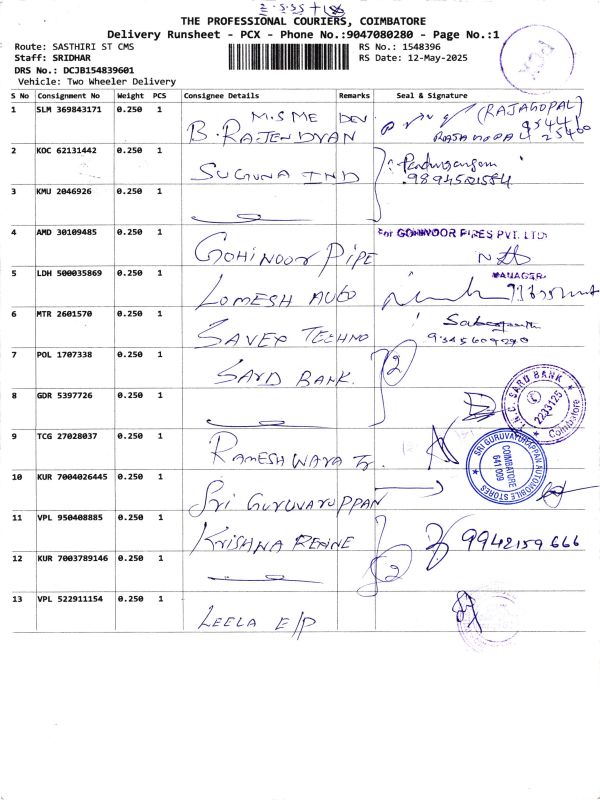 THE PROFESSIONAL COURIERS, COIMBATORE
Delivery Runsheet - PCX - Phone No.:9047080280 - Page No.:1
Route: SASTHIRI ST CMS
RS No.: 1548396
Staff: SRIDHAR
RS Date: 12-May-2025
DRS No.: DCJB154839601
Vehicle: Two Wheeler Delivery
PCX
S No Consignment No Weight PCS Consignee Details Remarks Seal & Signature
1 SLM 369843171 0.250 1 M.S ME DEV (RAJAGOPAL)
B. RAJENDRAN
2 KOC 62131442 0.250 1 SUGUNA IND
9894521584
3 KMU 2046926 0.250 1
4 AMD 30109485 0.250 1 GOHINOOR PIPE
For GOHINOOR PIPES PVT. LTD.
MANAGER
5 LDH 500035869 0.250 1 LOMESH AUTO
6 MTR 2601570 0.250 1 SAVEX TECHNO
9345604290
7 POL 1707338 0.250 1 SARD BANK. 2
8 GDR 5397726 0.250 1
SARD BANK
2233125
Coimbatore
9 TCG 27028037 0.250 1 RAMESHWARA Tr.
SRI GURUVAYURAPPAN AUTOMOBILE STORES
COIMBATORE
641 009
10 KUR 7004026445 0.250 1 SRI GURUVARUPPAN
11 VPL 950408885 0.250 1 KRISHNA REFINE 9942159666
12 KUR 7003789146 0.250 1 2
13 VPL 522911154 0.250 1 LEELA E/P